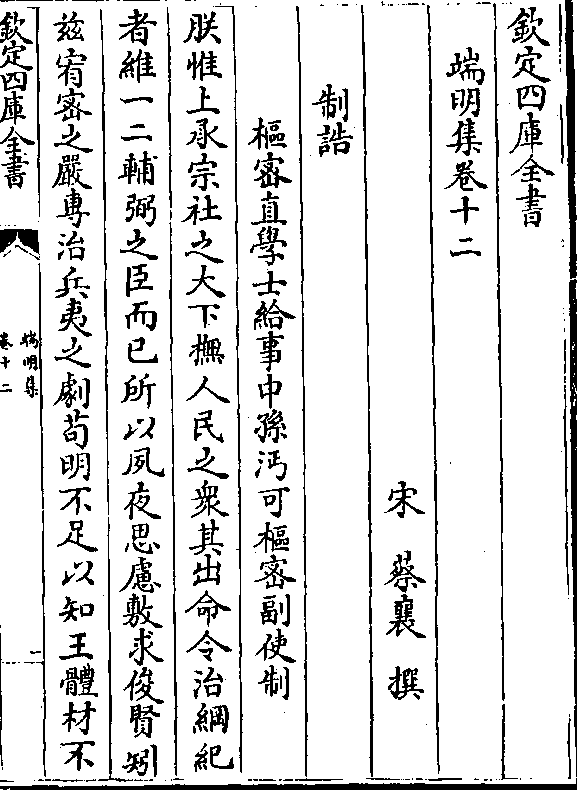 欽定四庫全書
端明集卷十二
宋 蔡襄 撰
制誥
樞密直學士給事中孫沔可樞密副使制
朕惟上承宗社之大下撫人民之衆其出命令治綱紀
者維一二輔弼之臣而已所以夙夜思慮敷求俊賢矧
兹宥密之嚴專治兵夷之劇苟明不足以知王體材不
欽定四庫全書
端明集
卷十二
一